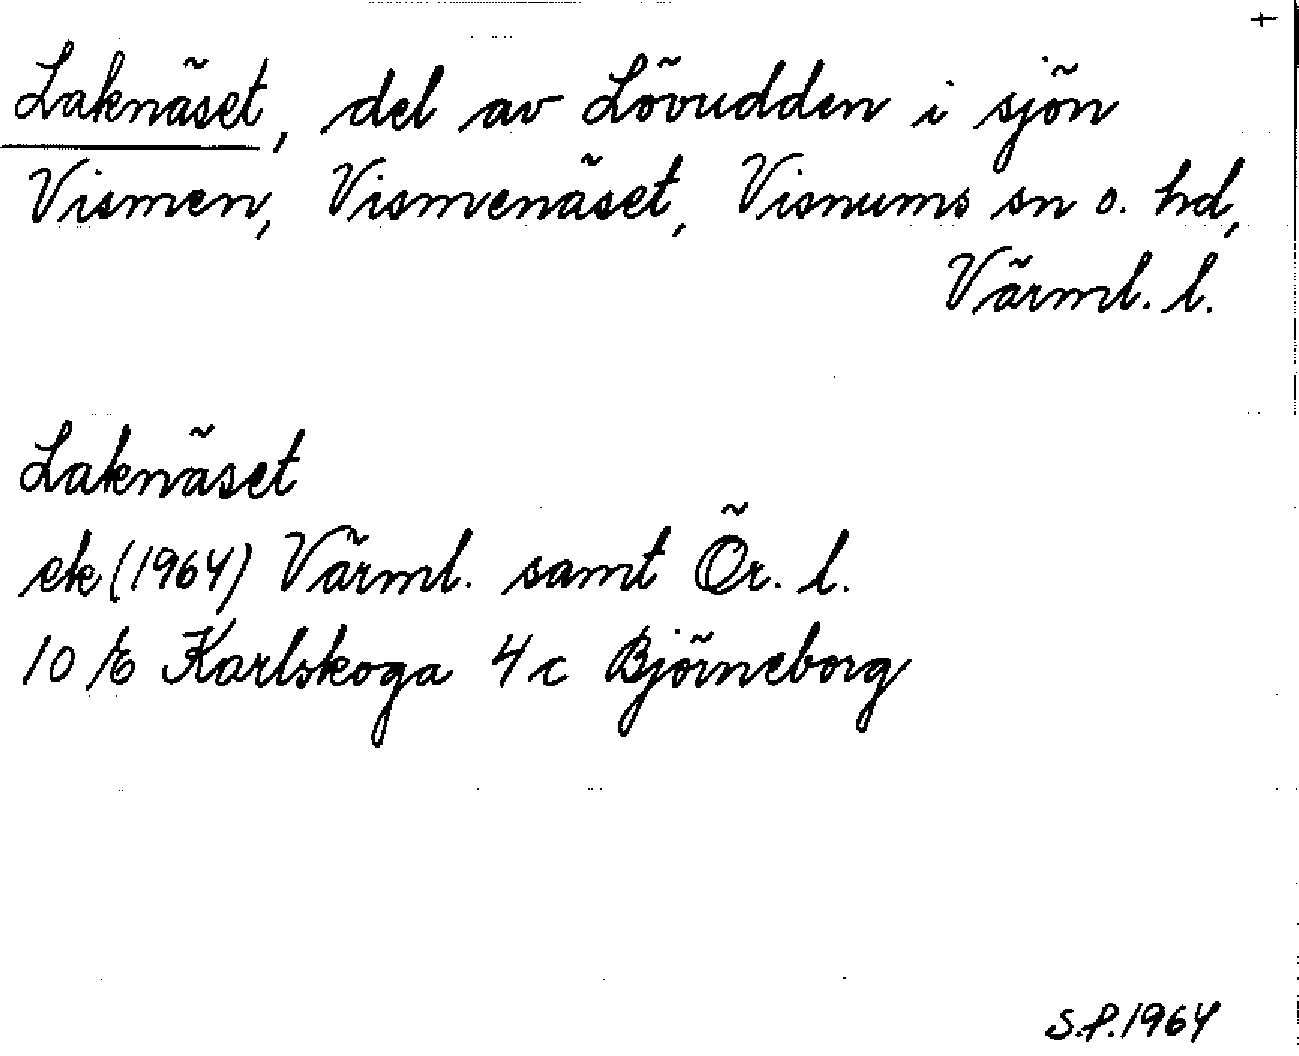 +
Laknäset, del av Lövudden i sjön
Vismen, Vismenäset, Visnums sn o. hd,
Värml. l.
Laknäset
ek (1964) Värml. samt Ör. l.
10 E Karlskoga 4 c Björneborg
S.P. 1964